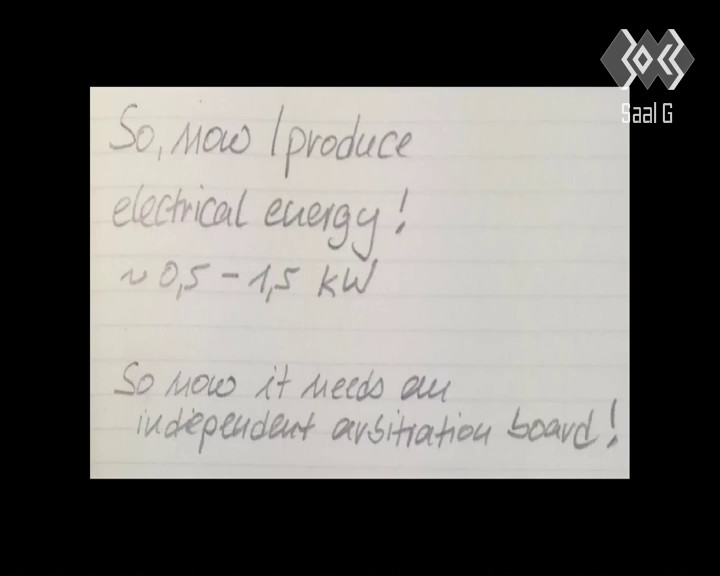 Saal G
So, now I produce
electrical energy!
~ 0,5 - 1,5 kW
So now it needs an
independent arbitration board!